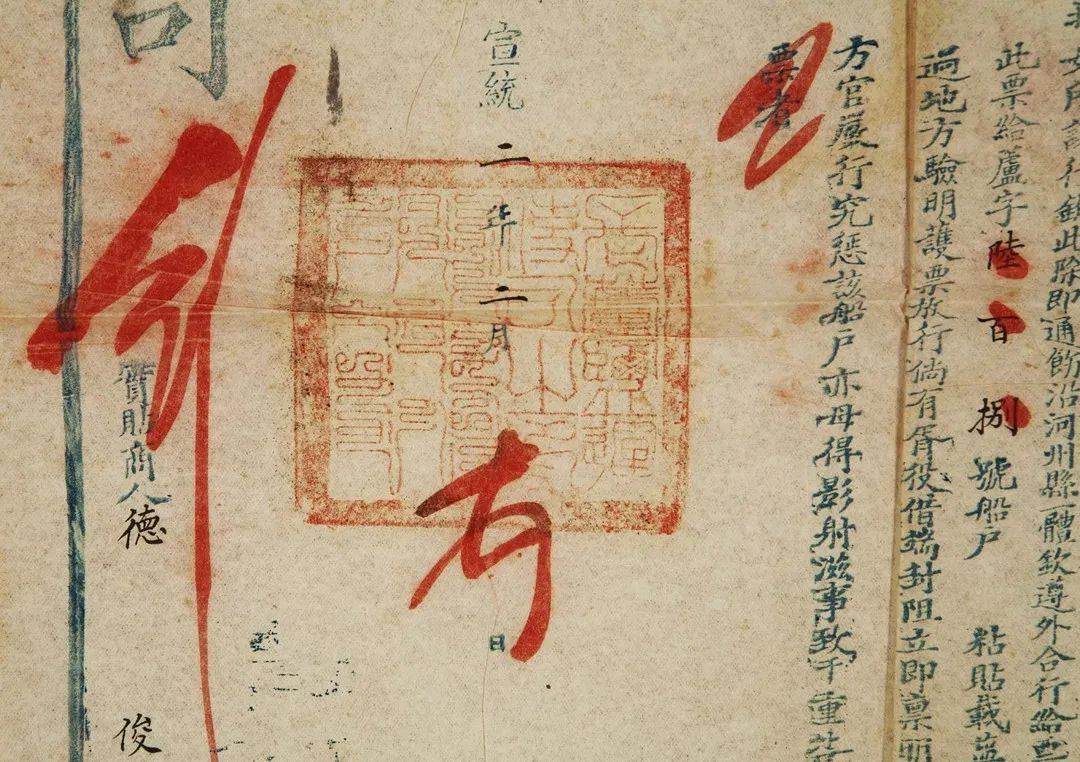 所議行欽此除即通飭沿河州縣一體欽遵外合行給
此票給蘆字陸百捌號船戶 粘貼載
過地方驗明護票放行倘有胥役借端封阻立即禀明
方官嚴行究懲該船戶亦毋得影射滋事致干重
票者
宣統二年二月 日
實貼商人德俊
司